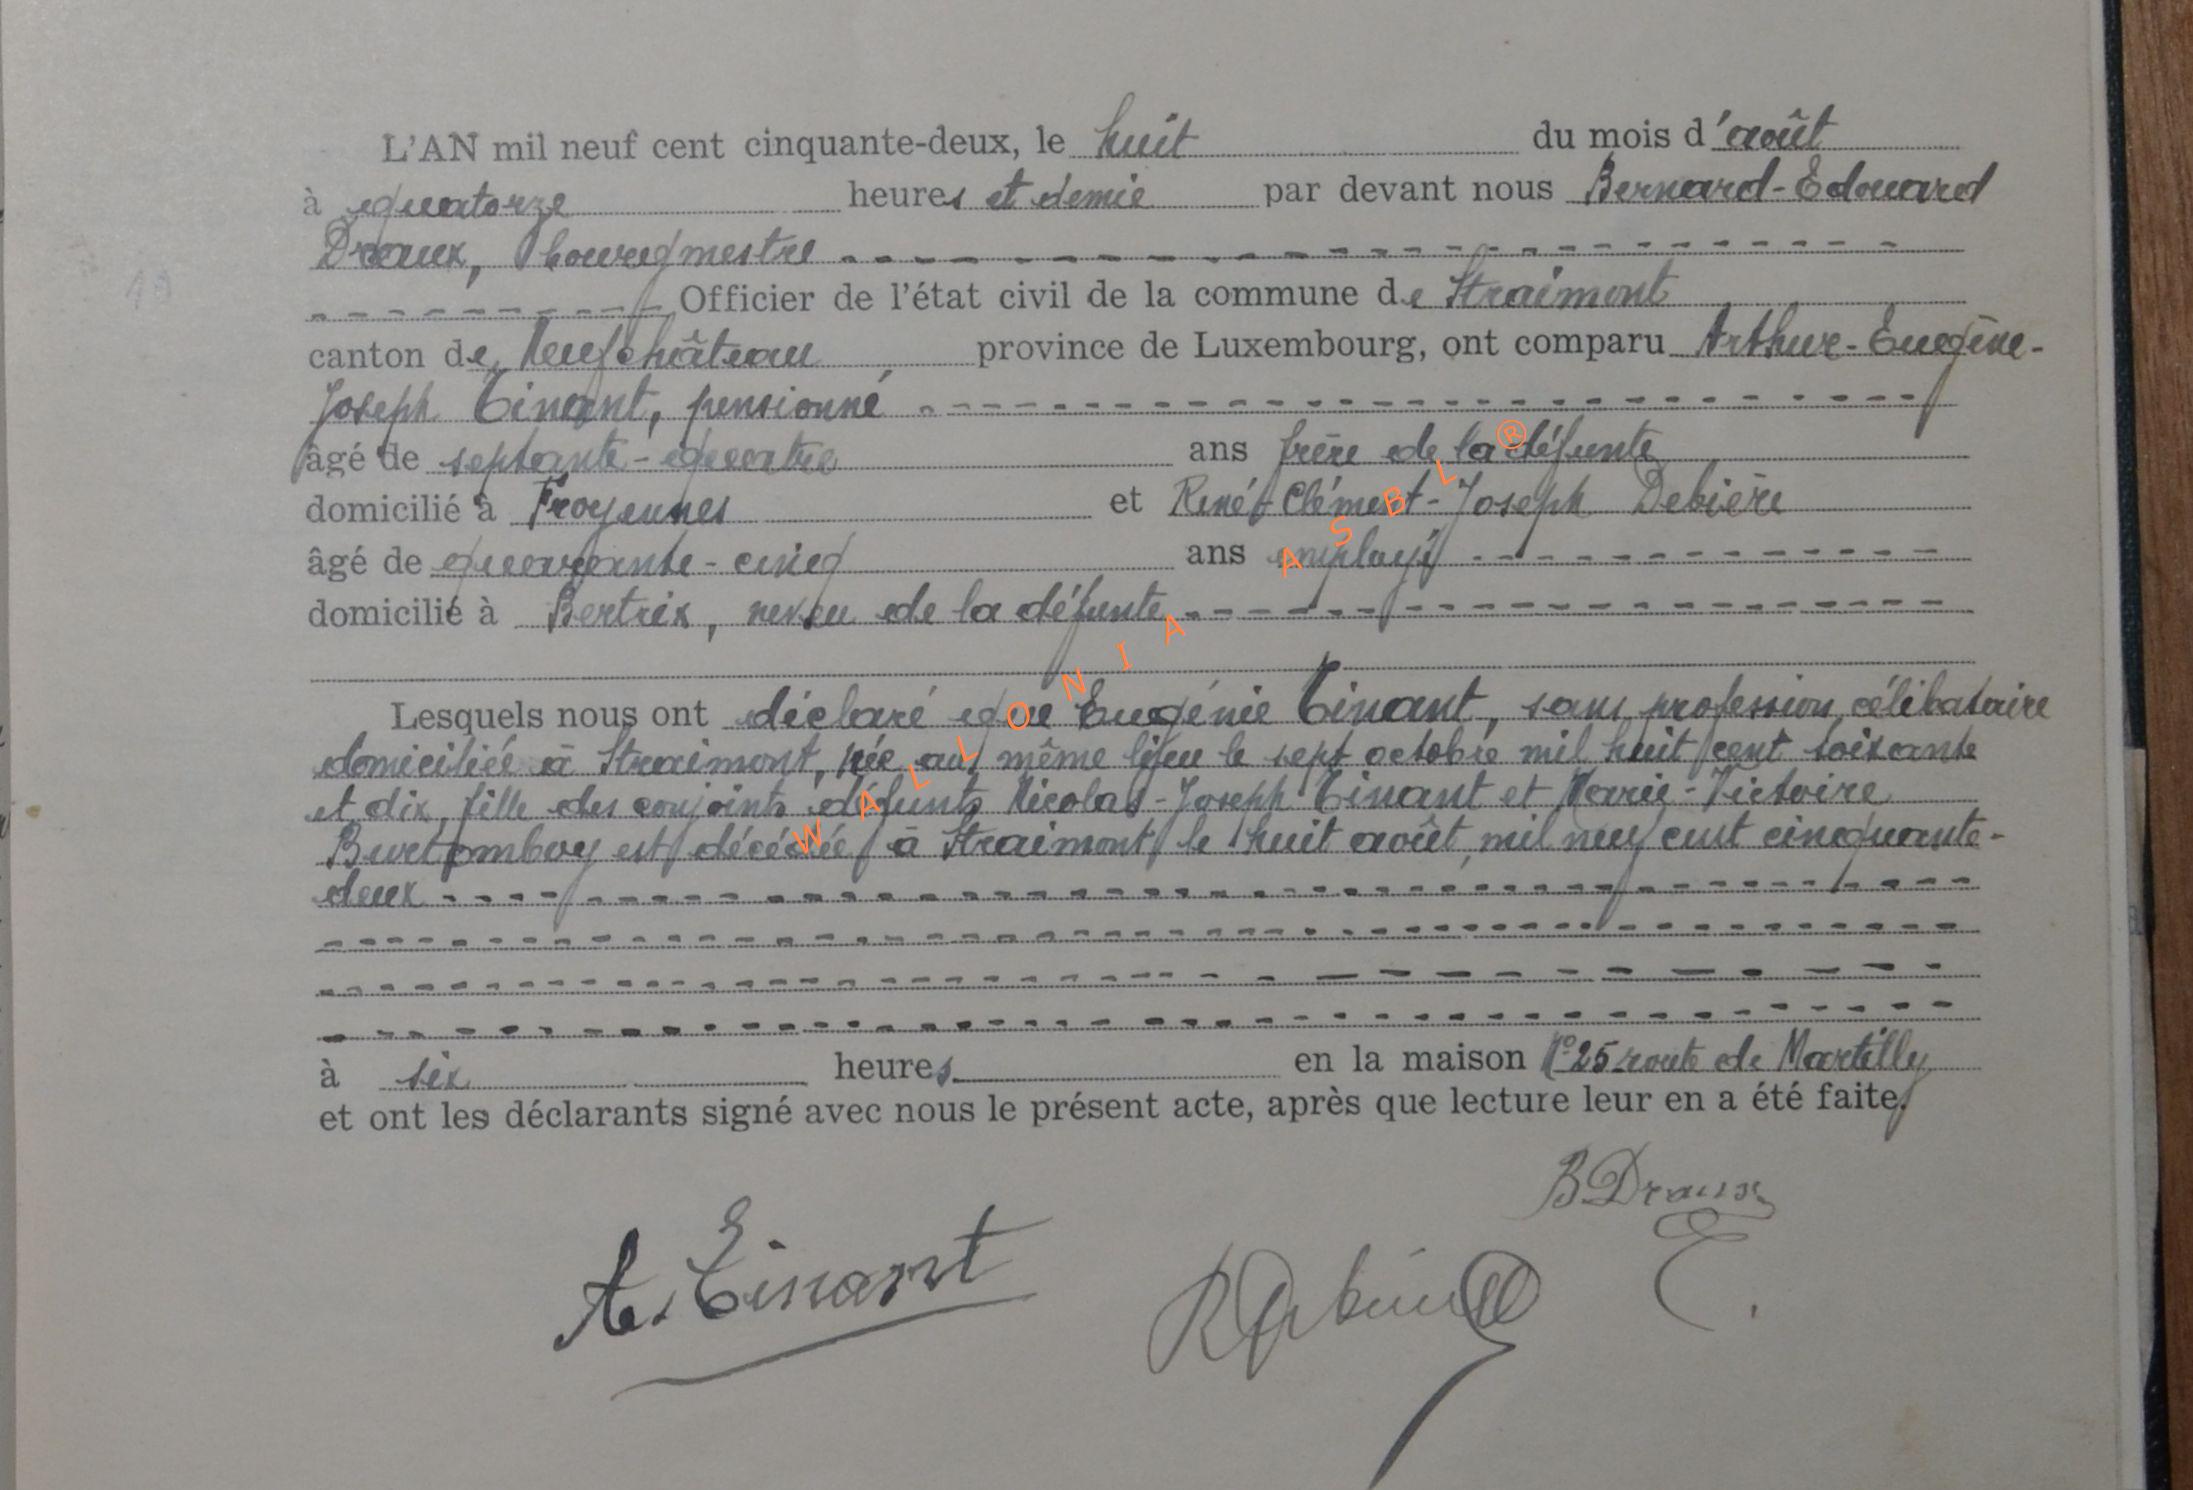 L'AN mil neuf cent cinquante-deux, le huit du mois d'août
à quatorze heures et demie par devant nous Bernard-Edouard
Draux, bourgmestre
Officier de l'état civil de la commune de Straimont
canton de Neufchâteau province de Luxembourg, ont comparu Arthur-Eugène-
Joseph Tinant, pensionné
âgé de septante-quatre ans frère de la défunte
domicilié à Froyennes et René-Clément-Joseph Debière
âgé de quarante-cinq ans employé
domicilié à Bertrix, neveu de la défunte
Lesquels nous ont déclaré que Eugénie Tinant, sans profession, célibataire
domiciliée à Straimont, née au même lieu le sept octobre mil huit cent soixante
et dix, fille des conjoints défunts Nicolas-Joseph Tinant et Marie-Victoire
est décédée à Straimont le huit août mil neuf cent cinquante-
deux
à six heures en la maison N° 25 route de Martilly
et ont les déclarants signé avec nous le présent acte, après que lecture leur en a été faite.
B Draux
A. Tinant
WALLONIA ASBL ®